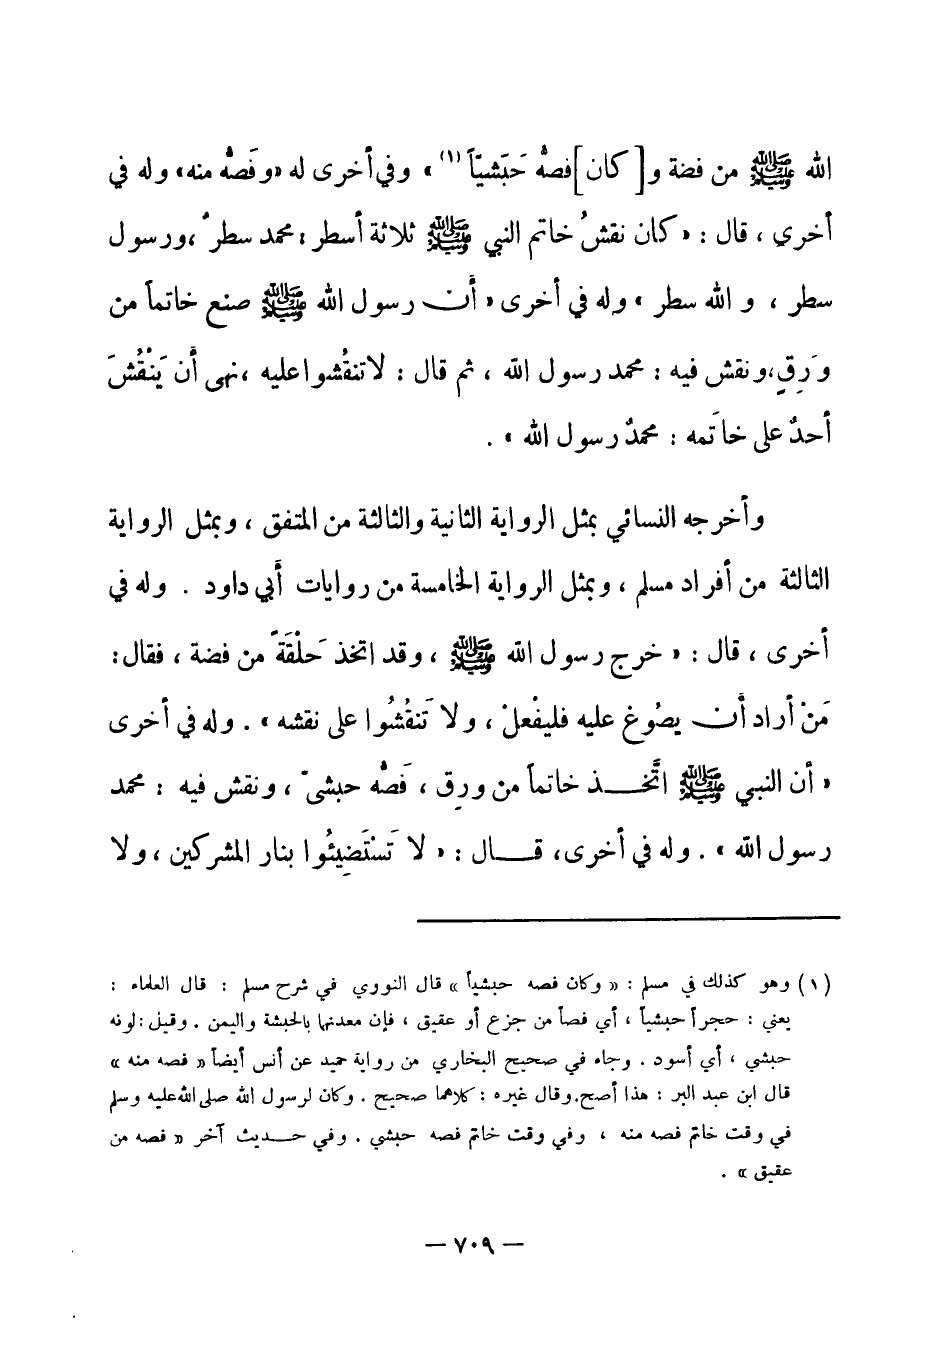 الله ﷺ من فضة و[كان]فصُّه حَبَشيّاً (١) » وفي أخرى له «وفَصُّه منه» وله في
أخرى ، قال : « كان نقشُ خاتم النبي ﷺ ثلاثة أسطر : محمد سطرٌ ، ورسول
سطر ، و الله سطر » وله في أخرى « أن رسول الله ﷺ صنع خاتماً من
وَرِقٍ،ونقش فيه : محمد رسول الله ، ثم قال : لاتنقُشوا عليه ،نهى أن يَنْقُشَ
أحدٌ على خاتَمه : محمدٌ رسول الله » .
وأخرجه النسائي بمثل الرواية الثانية والثالثة من المتفق ، وبمثل الرواية
الثالثة من أفراد مسلم ، وبمثل الرواية الخامسة من روايات أبي داود . وله في
أخرى ، قال : « خرج رسول الله ﷺ ، وقد اتخذ حَلْقَةً من فضة ، فقال:
مَنْ أراد أن يصُوغ عليه فليفعلْ ، ولا تَنقُشُوا على نقشه » . وله في أخرى
« أن النبي ﷺ اتَّخذ خاتماً من ورِق ، فَصُّه حبشيّ ، ونقش فيه : محمد
رسول الله » . وله في أخرى، قال : « لا تَستَضِيئُوا بنار المشركين ، ولا
(١) وهو كذلك في مسلم : « وكان فصه حبشياً » قال النووي في شرح مسلم : قال العلماء :
يعني : حجراً حبشياً ، أي فصاً من جزع أو عقيق ، فإن معدنها بالحبشة واليمن . وقيل : لونه
حبشي ، أي أسود . وجاء في صحيح البخاري من رواية حميد عن أنس أيضاً « فصه منه »
قال ابن عبد البر : هذا أصح.وقال غيره : كلاهما صحيح . وكان لرسول الله صلى الله عليه وسلم
في وقت خاتم فصه منه ، وفي وقت خاتم فصه حبشي . وفي حديث آخر « فصه من
عقيق » .
— ٧٠٩ —